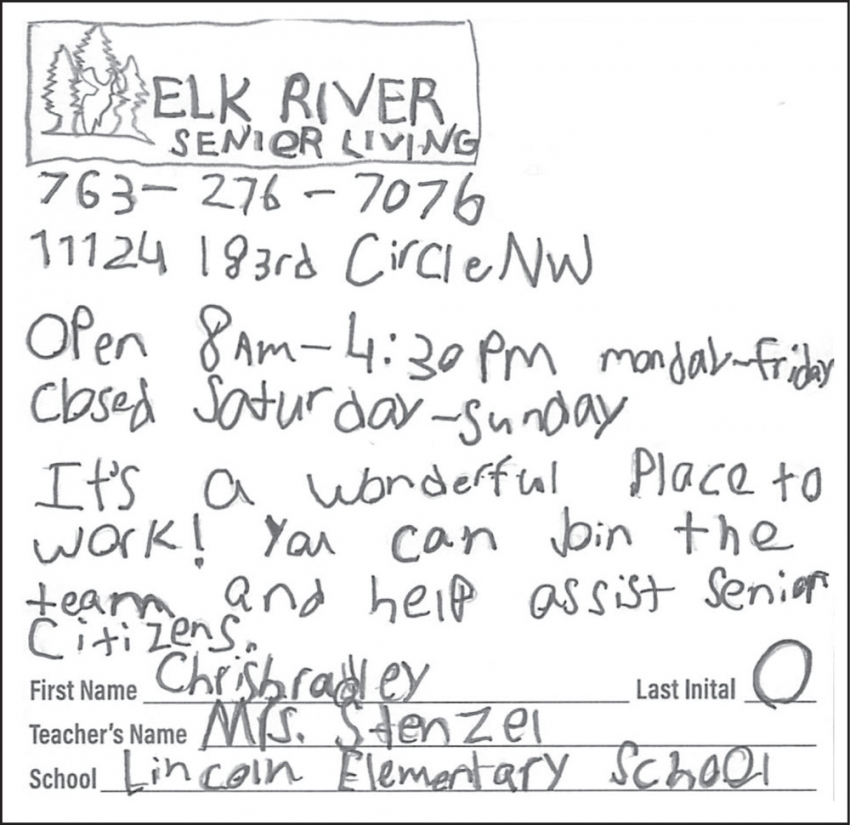 ELK RIVER
SENIOR LIVING
763-276-7076
11124 183rd Circle NW
Open 8AM-4:30PM monday-friday
Closed Saturday-Sunday
It's a wonderful Place to
work! You can Join the
team and help assist Senior
Citizens.
First Name Chrisbradley Last Inital O
Teacher's Name Mrs. Stenzel
School Lincoln Elementary School